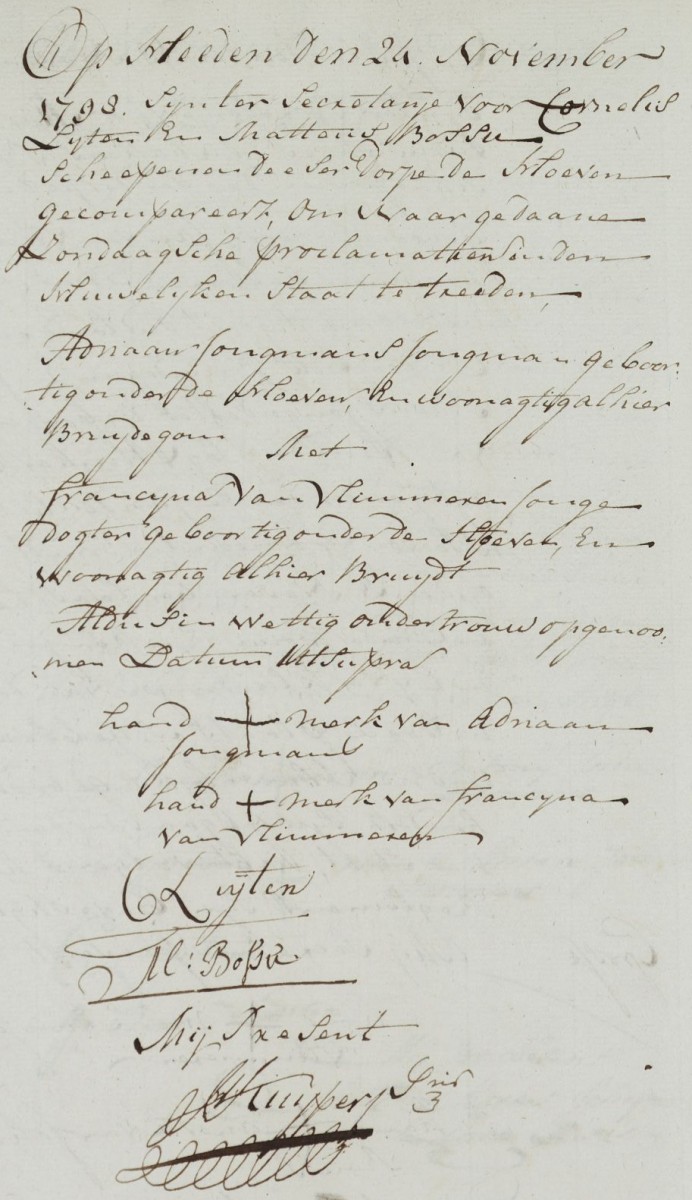 Op Heeden den 24. November
1798. Syn ter Secretarije voor Cornelis
Luyten En Matteus Bossu
Scheepenen deeser Dorpe de Hoeven
gecompareert, Om Naar gedaane
Zondaagsche proclamatien in den
Huwelyken Staat te treeden,
Adriaan Jongmans Jongman geboor-
tig onder de Hoeven, En woonagtig alhier
Bruydegom
Met
francyna Van Vlimmeren Jonge
dogter geboortig onder de Hoeven, En
woonagtig Alhier Bruydt
Aldus in wettig ondertrouw opgenoo-
men Datum Ut Supra
hand + merk van Adriaan
Jongmans
hand + merk van francyna
van Vlimmeren
C Luÿten
M: Bossu
Mij Present
Kuijpers